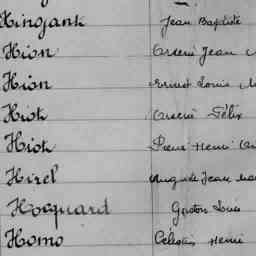 Hinojank Jean Baptiste
Hion Arsène Jean
Hion Ernest Louis
Hiot Arsène Félix
Hiot Pierre Henri
Hirel Auguste Jean
Hocquard Gaston Louis
Homo Célestin Henri